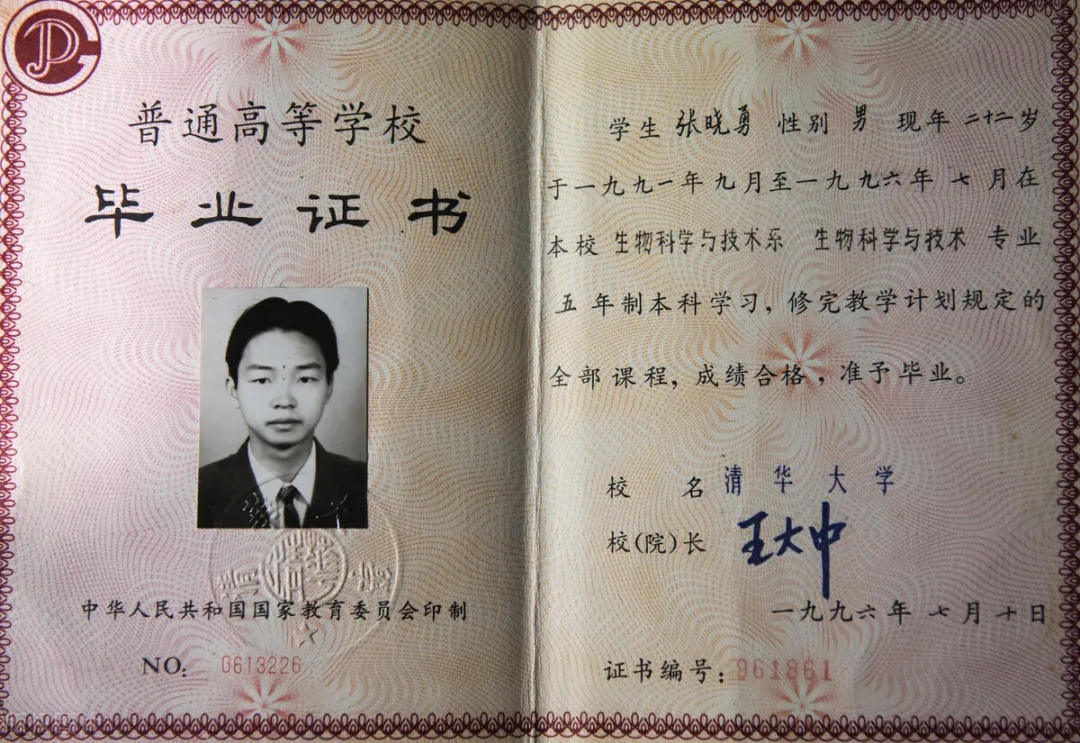 普通高等学校
毕业证书
中华人民共和国国家教育委员会印制
NO: 0613226
学生 张晓勇 性别 男 现年 二十二岁
于一九九一年九月至一九九六年七月在
本校 生物科学与技术系 生物科学与技术 专业
五年制本科学习，修完教学计划规定的
全部课程，成绩合格，准予毕业。
校 名 清华大学
校(院)长 王大中
一九九六年七月十日
证书编号：961861